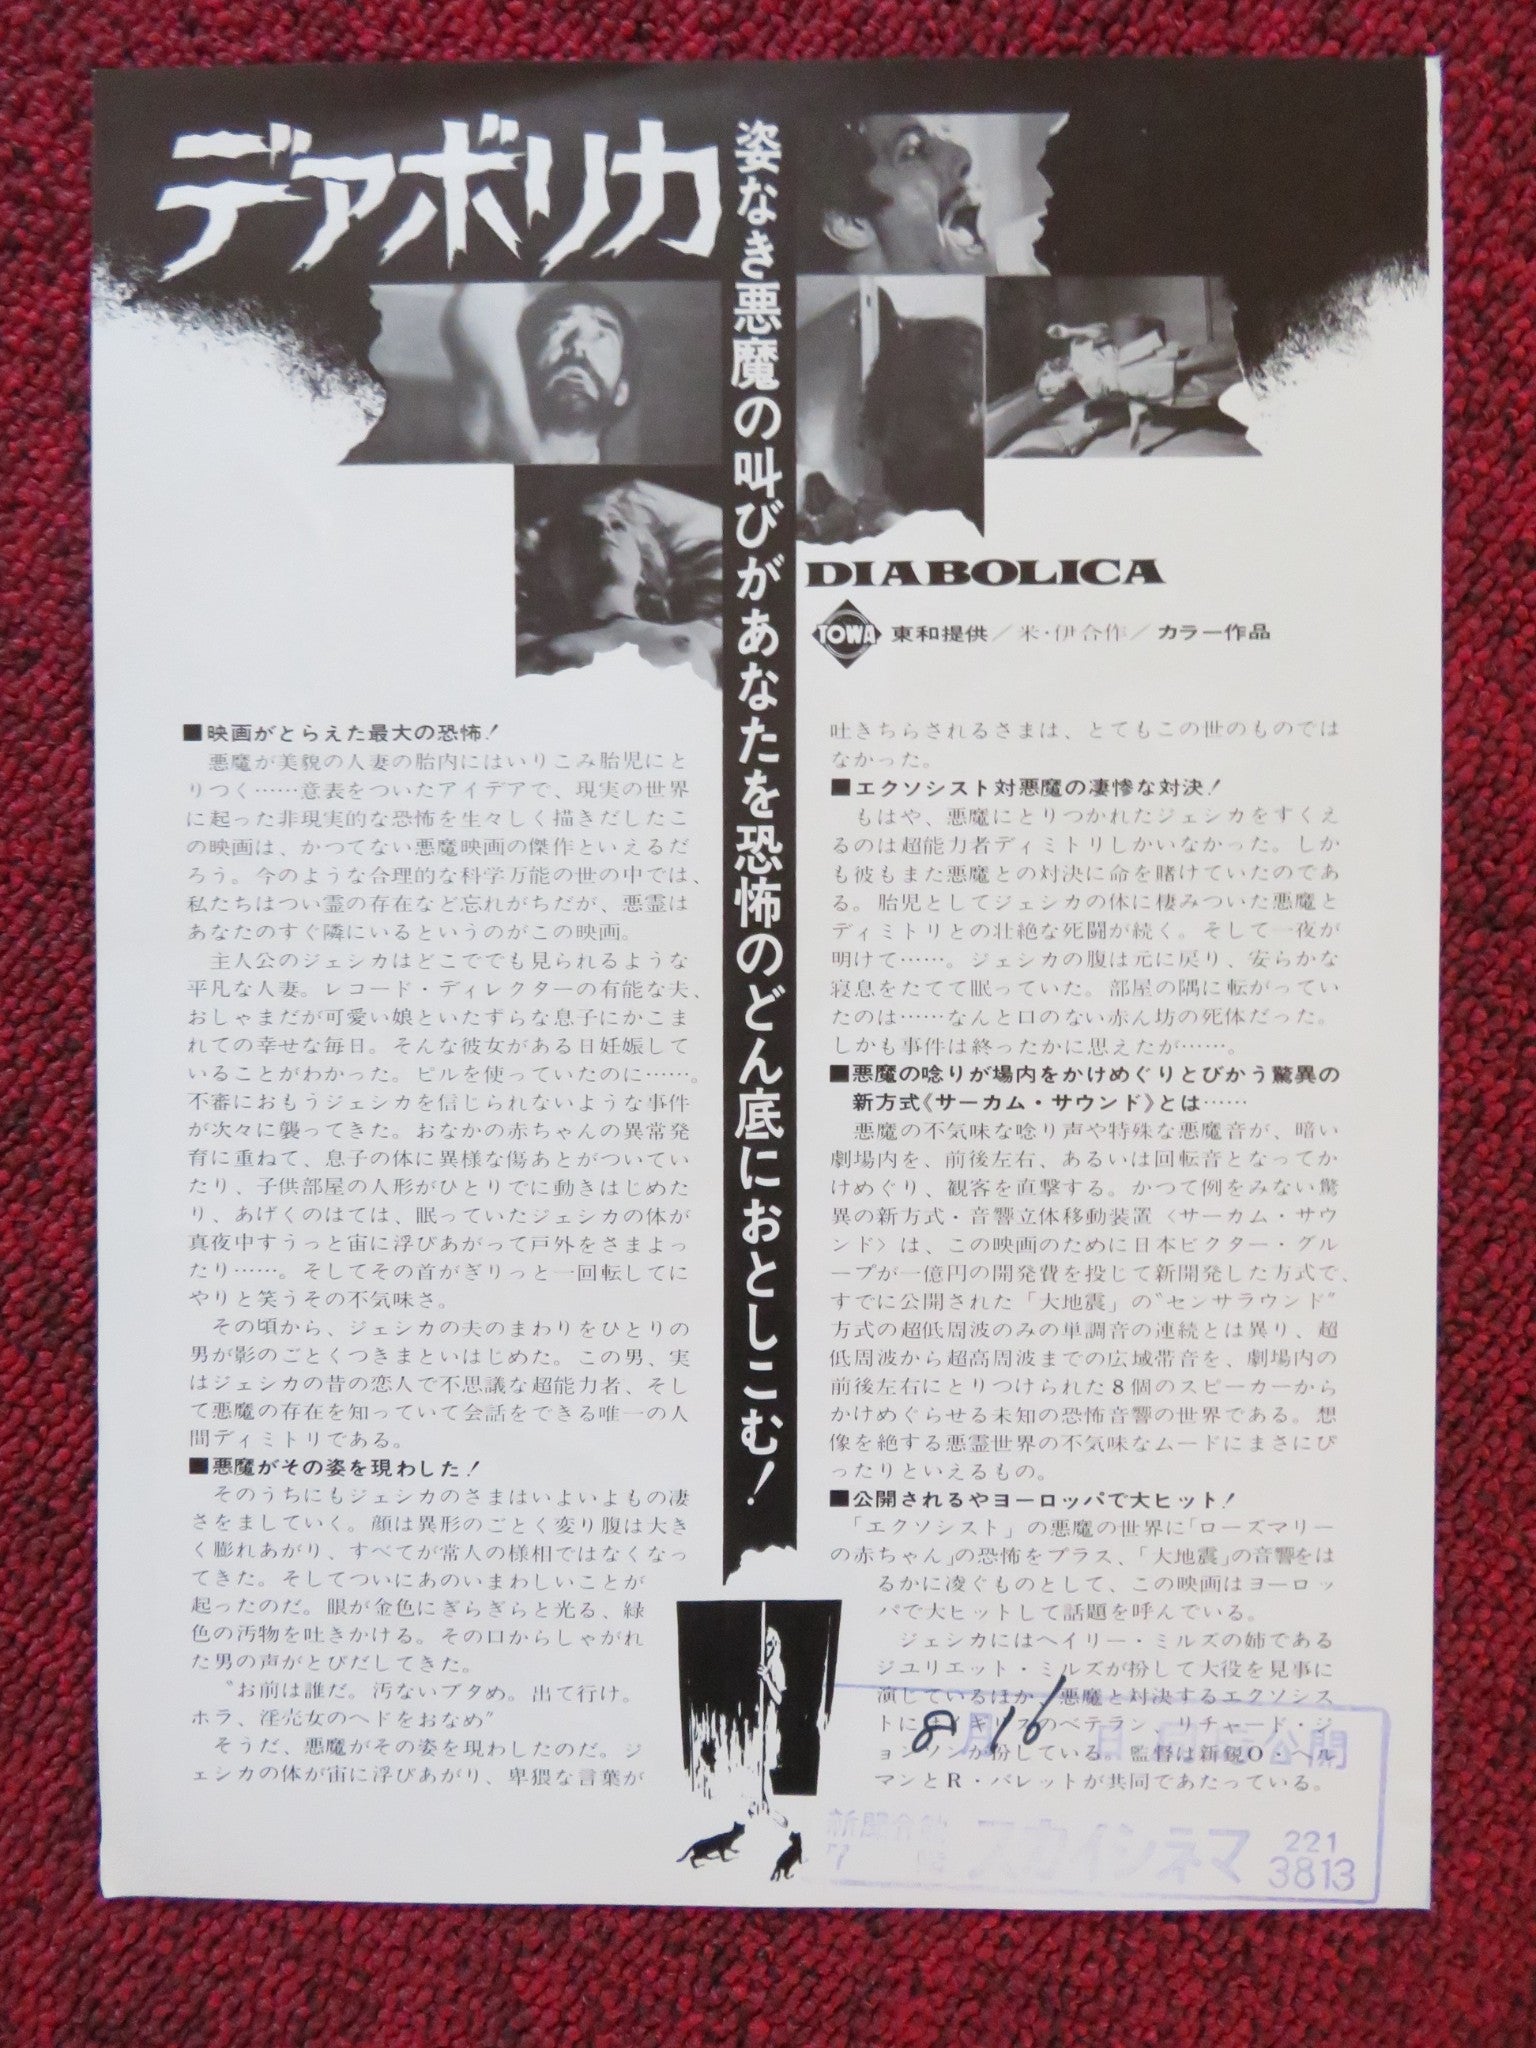 デアボリカ
姿なき悪魔の叫びがあなたを恐怖のどん底におとしこむ！
DIABOLICA
TOWA 東和提供／米・伊合作／カラー作品
■映画がとらえた最大の恐怖！
悪魔が美貌の人妻の胎内にはいりこみ胎児にと
りつく……意表をついたアイデアで、現実の世界
に起った非現実的な恐怖を生々しく描きだしたこ
の映画は、かつてない悪魔映画の傑作といえるだ
ろう。今のような合理的な科学万能の世の中では、
私たちはつい霊の存在など忘れがちだが、悪霊は
あなたのすぐ隣にいるというのがこの映画。
主人公のジェシカはどこででも見られるような
平凡な人妻。レコード・ディレクターの有能な夫、
おしゃまだが可愛い娘といたずらな息子にかこま
れての幸せな毎日。そんな彼女がある日妊娠して
いることがわかった。ピルを使っていたのに……。
不審におもうジェシカを信じられないような事件
が次々に襲ってきた。おなかの赤ちゃんの異常発
育に重ねて、息子の体に異様な傷あとがついてい
たり、子供部屋の人形がひとりでに動きはじめた
り、あげくのはては、眠っていたジェシカの体が
真夜中すうっと宙に浮びあがって戸外をさまよっ
たり……。そしてその首がぎりっと一回転してに
やりと笑うその不気味さ。
その頃から、ジェシカの夫のまわりをひとりの
男が影のごとくつきまといはじめた。この男、実
はジェシカの昔の恋人で不思議な超能力者、そし
て悪魔の存在を知っていて会話をできる唯一の人
間ディミトリである。
■悪魔がその姿を現わした！
そのうちにもジェシカのさまはいよいよもの凄
さをましていく。顔は異形のごとく変り腹は大き
く膨れあがり、すべてが常人の様相ではなくなっ
てきた。そしてついにあのいまわしいことが
起ったのだ。眼が金色にぎらぎらと光る、緑
色の汚物を吐きかける。その口からしゃがれ
た男の声がとびだしてきた。
“お前は誰だ。汚ないブタめ。出て行け。
ホラ、淫売女のヘドをおなめ”
そうだ、悪魔がその姿を現わしたのだ。ジ
ェシカの体が宙に浮びあがり、卑猥な言葉が
吐きちらされるさまは、とてもこの世のものでは
なかった。
■エクソシスト対悪魔の凄惨な対決！
もはや、悪魔にとりつかれたジェシカをすくえ
るのは超能力者ディミトリしかいなかった。しか
も彼もまた悪魔との対決に命を賭けていたのであ
る。胎児としてジェシカの体に棲みついた悪魔と
ディミトリとの壮絶な死闘が続く。そして一夜が
明けて……。ジェシカの腹は元に戻り、安らかな
寝息をたてて眠っていた。部屋の隅に転がってい
たのは……なんと口のない赤ん坊の死体だった。
しかも事件は終ったかに思えたが……。
■悪魔の唸りが場内をかけめぐりとびかう驚異の
新方式《サーカム・サウンド》とは……
悪魔の不気味な唸り声や特殊な悪魔音が、暗い
劇場内を、前後左右、あるいは回転音となってか
けめぐり、観客を直撃する。かつて例をみない驚
異の新方式・音響立体移動装置〈サーカム・サウ
ンド〉は、この映画のために日本ビクター・グル
ープが一億円の開発費を投じて新開発した方式で、
すでに公開された「大地震」の“センサラウンド”
方式の超低周波のみの単調音の連続とは異り、超
低周波から超高周波までの広域帯音を、劇場内の
前後左右にとりつけられた8個のスピーカーから
かけめぐらせる未知の恐怖音響の世界である。想
像を絶する悪霊世界の不気味なムードにまさにぴ
ったりといえるもの。
■公開されるやヨーロッパで大ヒット！
「エクソシスト」の悪魔の世界に「ローズマリー
の赤ちゃん」の恐怖をプラス、「大地震」の音響をは
るかに凌ぐものとして、この映画はヨーロッ
パで大ヒットして話題を呼んでいる。
ジェシカにはヘイリー・ミルズの姉である
ジュリエット・ミルズが扮して大役を見事に
演じているほか、悪魔と対決するエクソシス
トにはイギリスのベテラン、リチャード・ジ
ョンソンが扮している。監督は新鋭O・ヘル
マンとR・バレットが共同であたっている。
8月16日 公開
スカイシネマ 221
3813